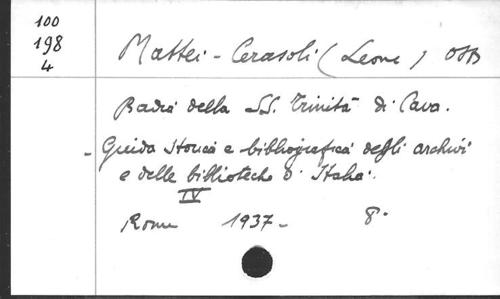 100
198
4
Mattei - Cerasoli (Leone) OSB
Badia della SS. Trinità di Cava.
- Guida storica e bibliografica degli archivi
e delle biblioteche d'Italia.
IV
Rome 1937 - 8°